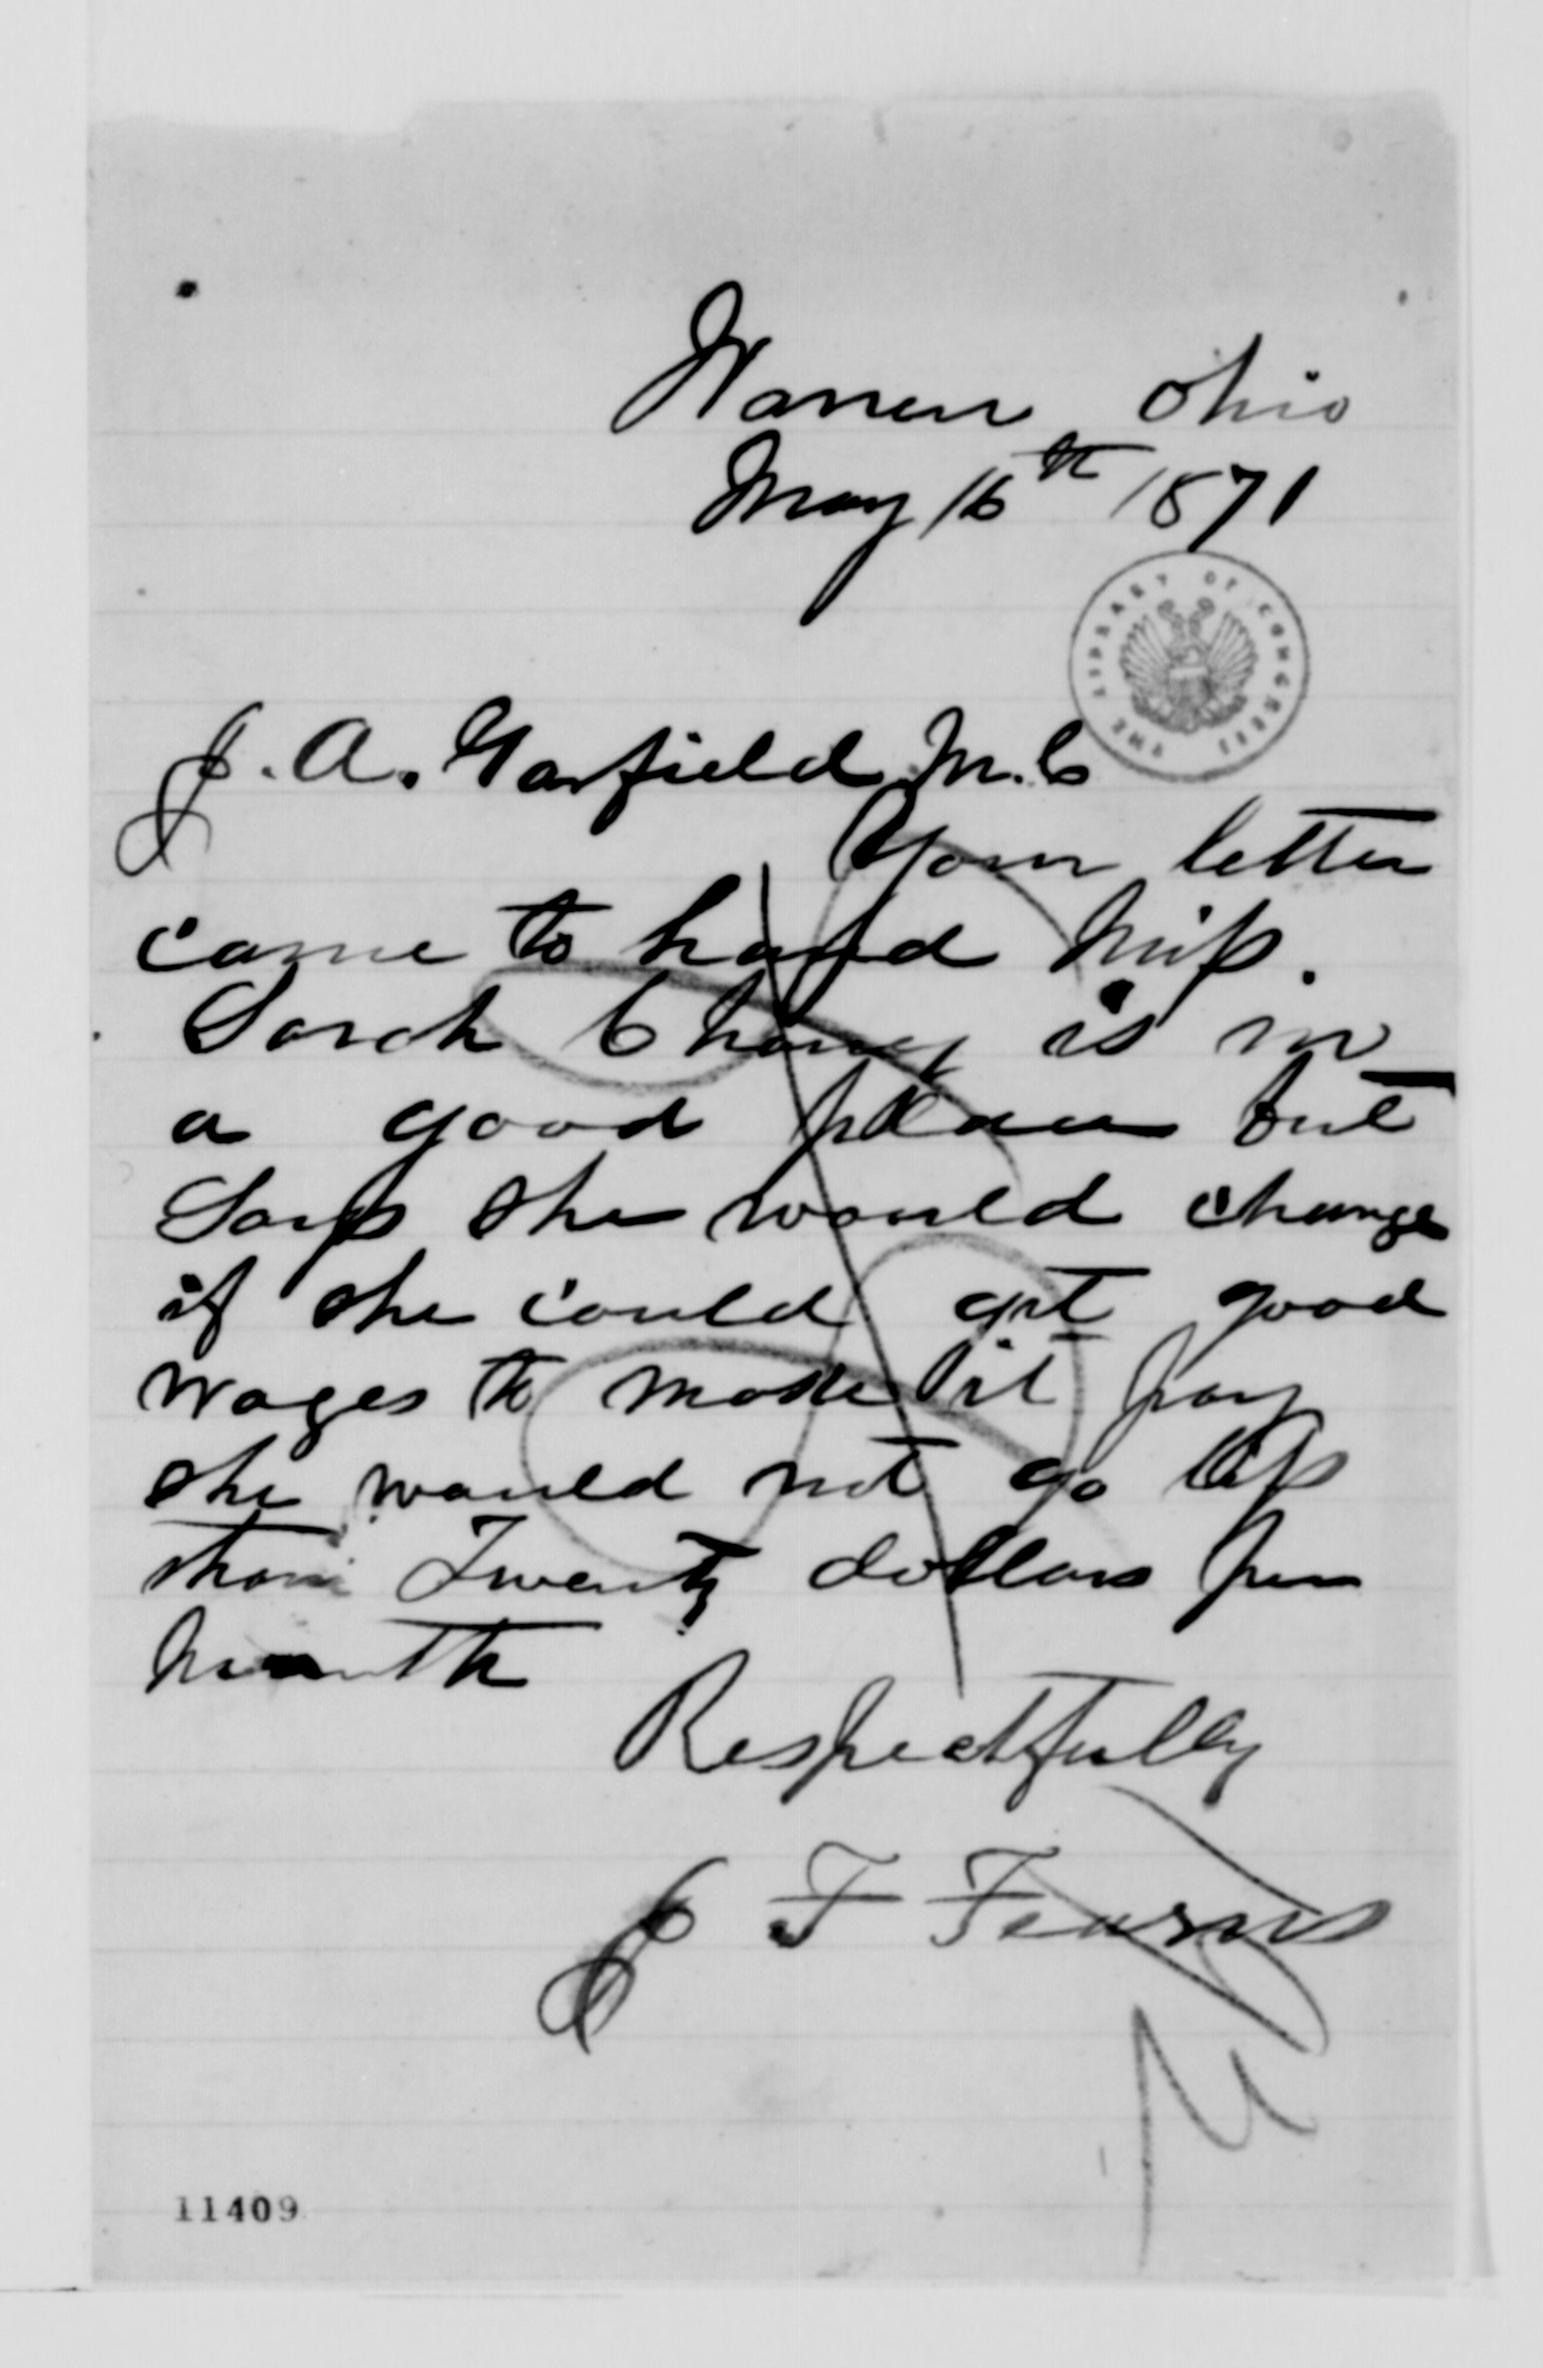 Warren Ohio
May 16th 1871
THE LIBRARY OF CONGRESS
J. A. Garfield M.C
Your letter
came to hand Miss.
Sarah Chaney is in
a good place but
Says she would change
if she could get good
wages to make it pay
she would not go less
than Twenty dollars per
Month
Respectfully
C F Fearns
11409